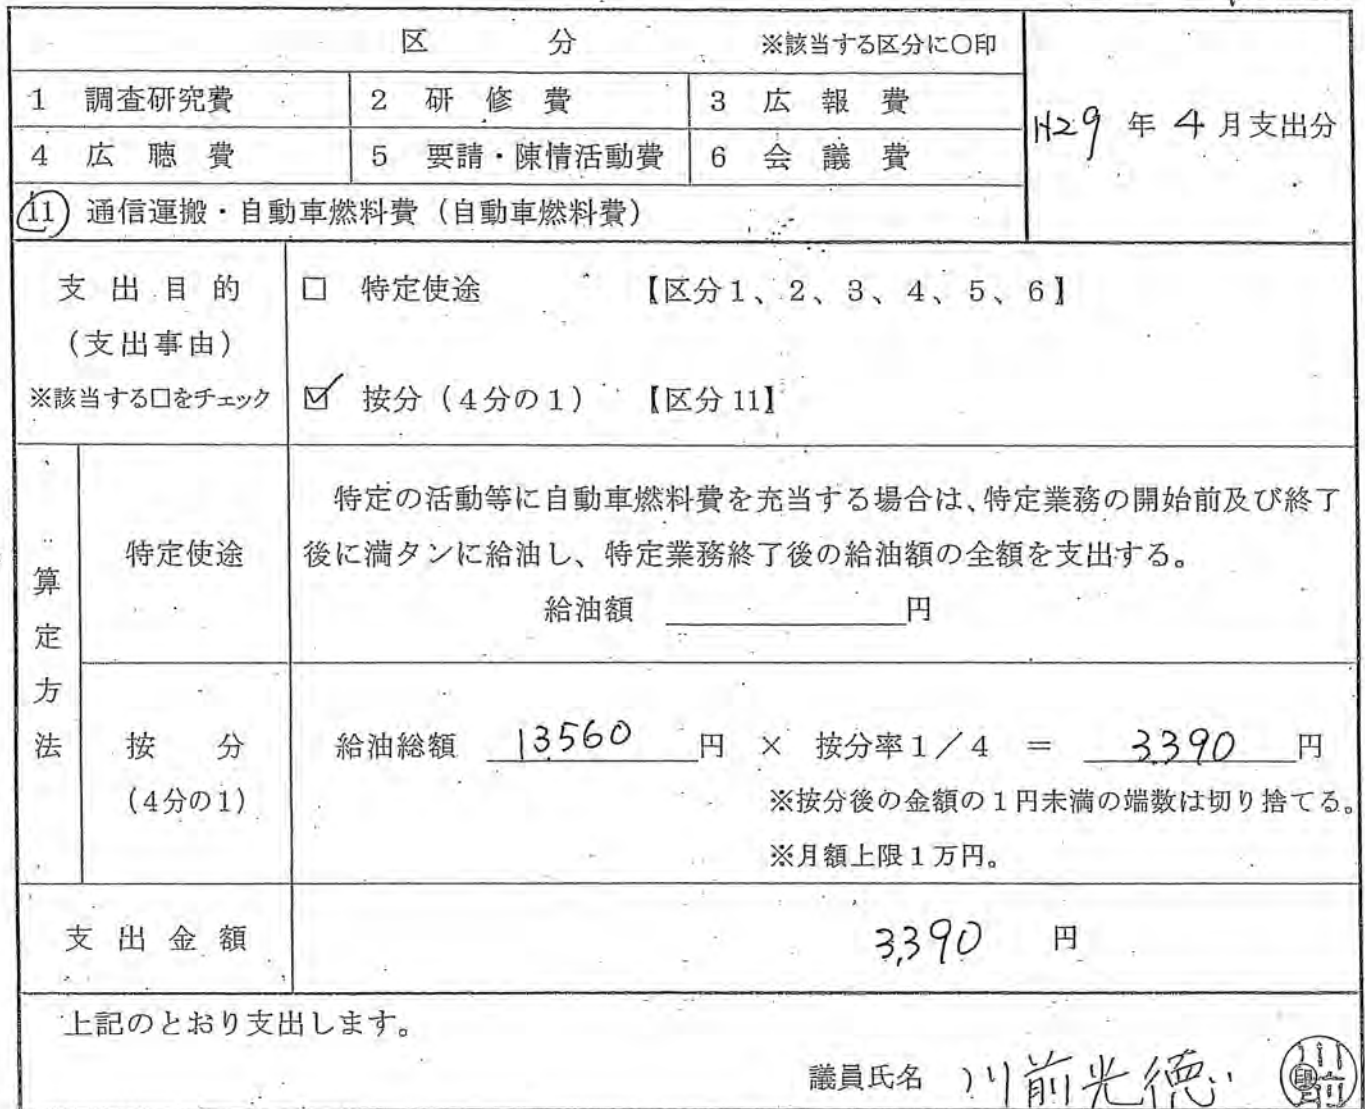 区分 ※該当する区分に○印
1 調査研究費 2 研修費 3 広報費
H29年4月支出分
4 広聴費 5 要請・陳情活動費 6 会議費
11 通信運搬・自動車燃料費（自動車燃料費）
支出目的
（支出事由）
※該当する□をチェック
□ 特定使途 【区分1、2、3、4、5、6】
☑ 按分（4分の1） 【区分11】
算定方法
特定使途
特定の活動等に自動車燃料費を充当する場合は、特定業務の開始前及び終了
後に満タンに給油し、特定業務終了後の給油額の全額を支出する。
給油額 円
按分
（4分の1）
給油総額 13560 円 × 按分率1／4 ＝ 3,390 円
※按分後の金額の1円未満の端数は切り捨てる。
※月額上限1万円。
支出金額 3,390 円
上記のとおり支出します。
議員氏名 川前光徳 印